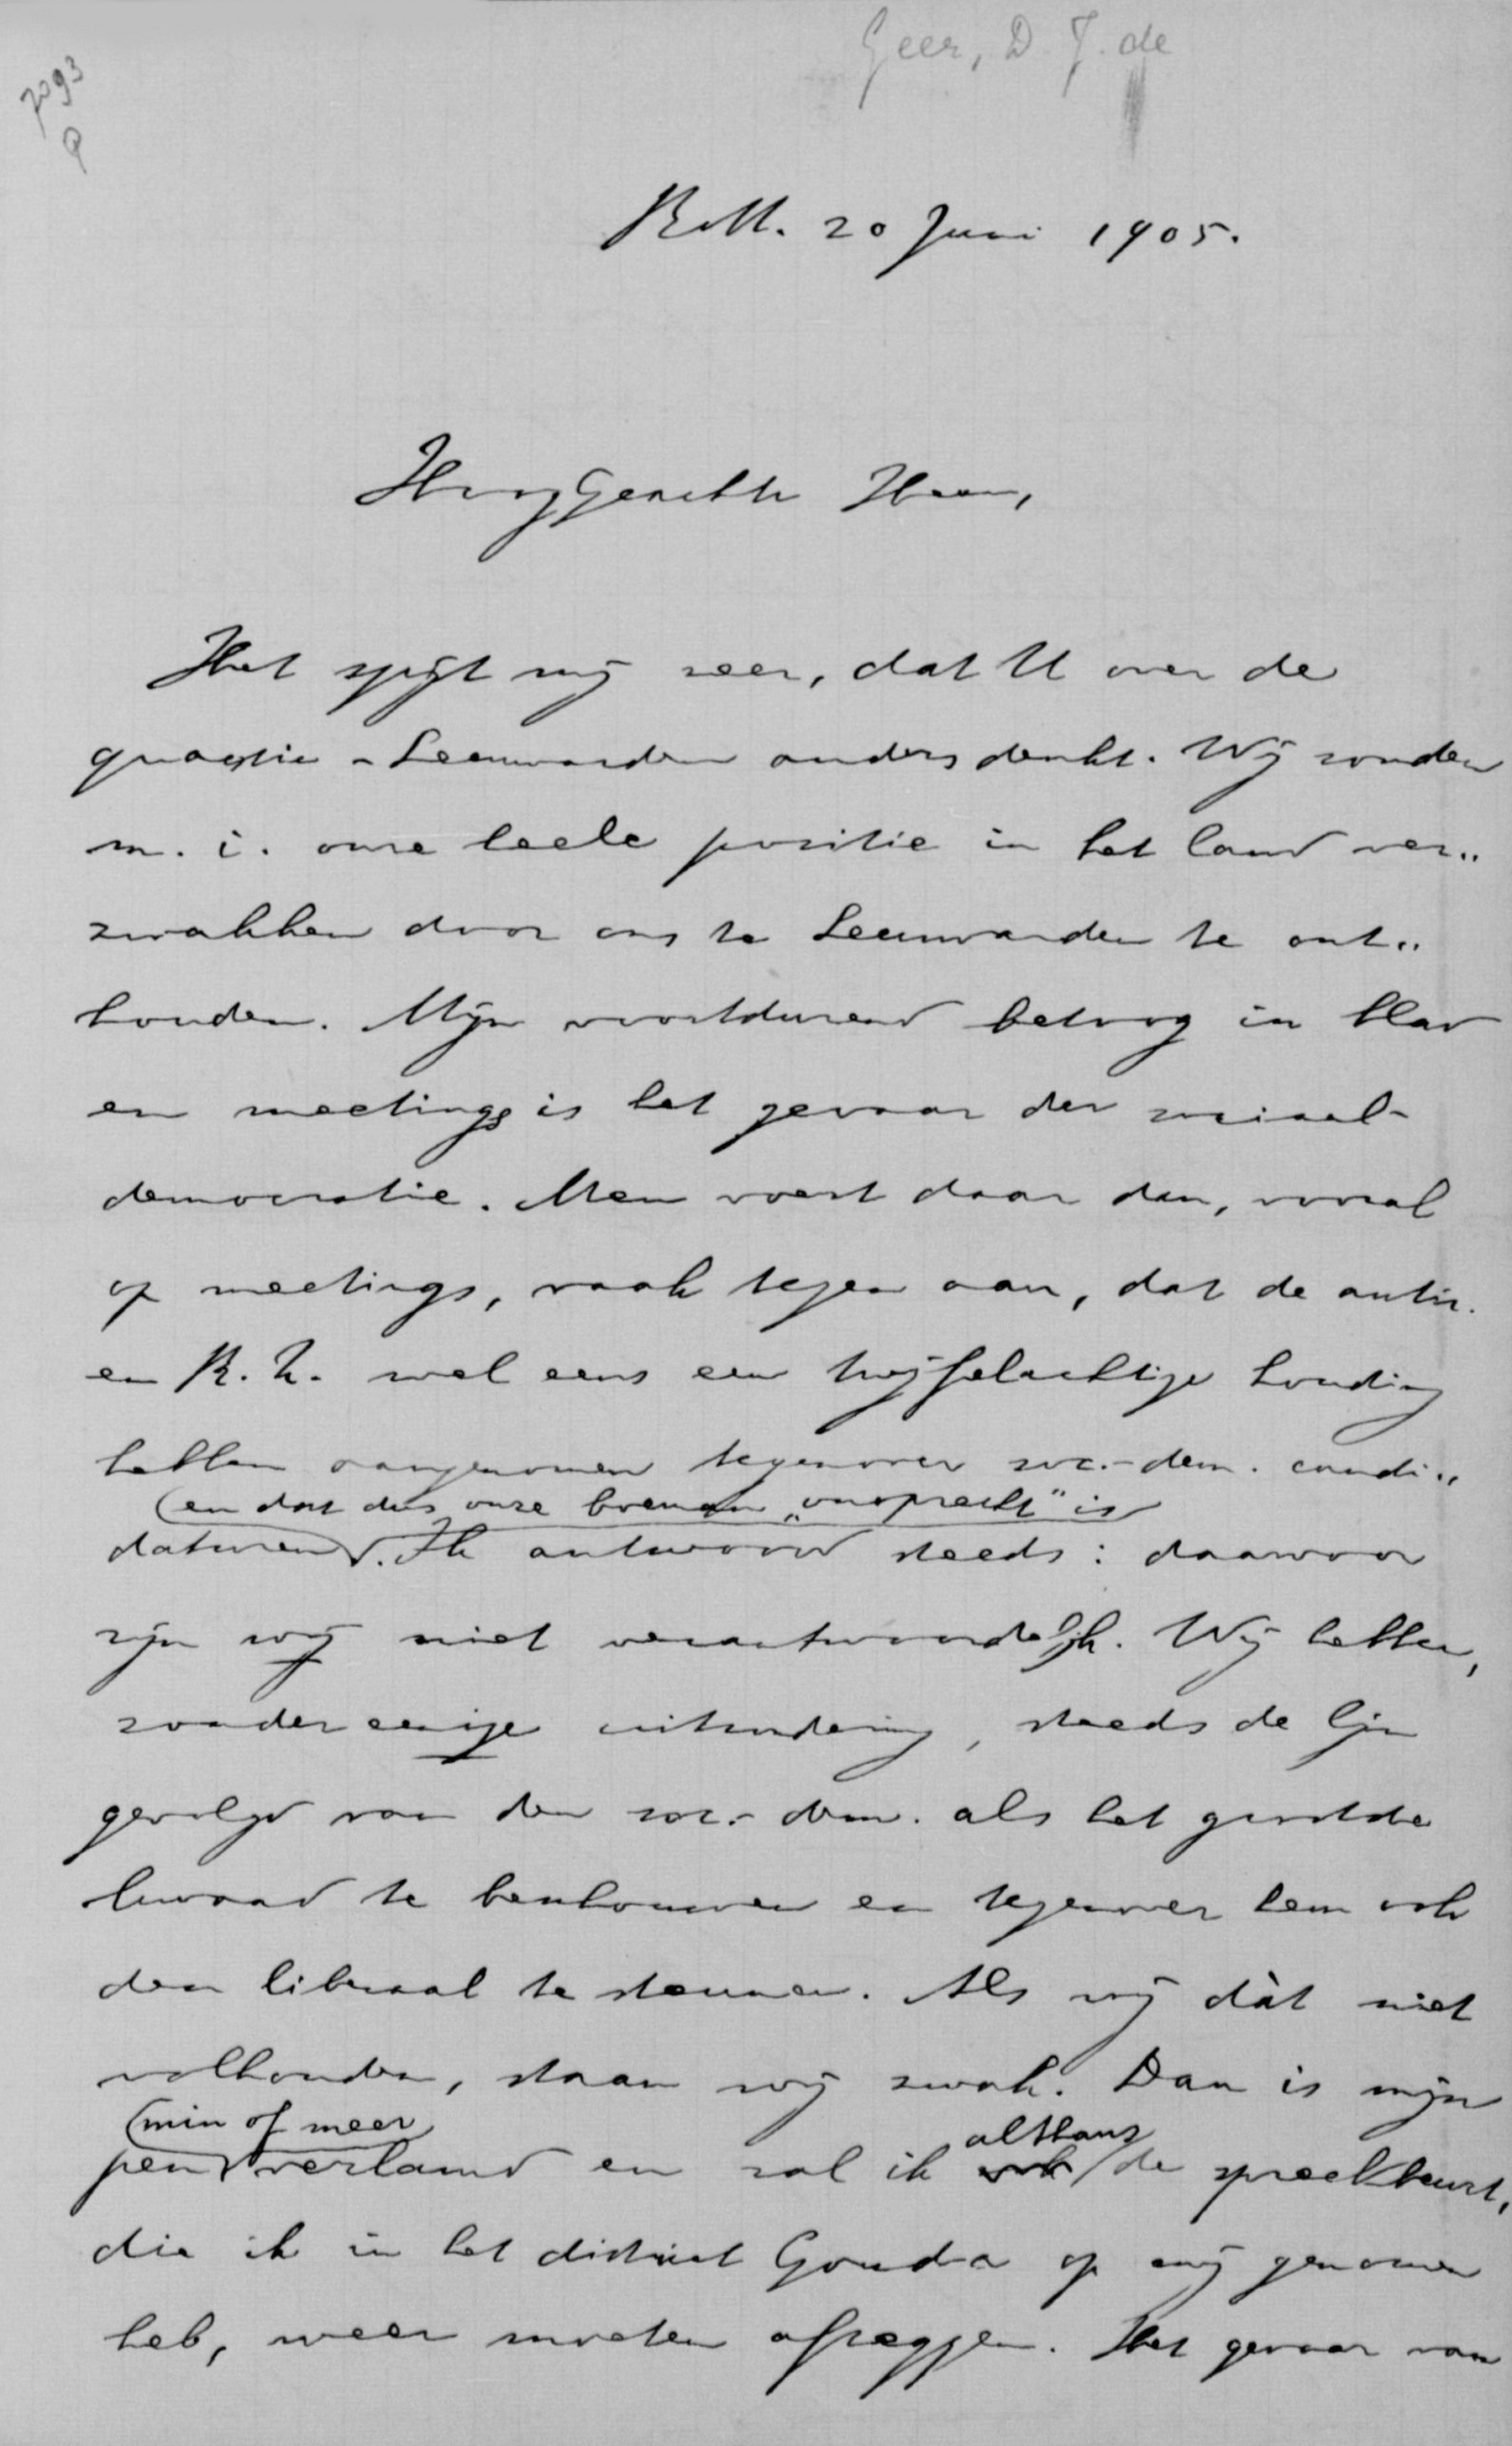 Geer, D. J. de
7093
Rott. 20 Juni 1905.
HoogGeachte Heer,
Het spijt mij zeer, dat U over de
quaestie-Leeuwarden anders denkt. Wij zouden
m. i. onze heele positie in het land ver„
zwakken door ons te Leeuwarden te ont„
houden. Mijn voortdurend betoog in blad
en meetings is het gevaar der sociaal-
democratie. Men voert daar dan, vooral
op meetings, vaak tegen aan, dat de antir.
en R. K. wel eens een twijfelachtige houding
hebben aangenomen tegenover soc.-dem. candi„
(en dat dus onze "onoprecht" is
daturen. Ik antwoord steeds: daarvoor
zijn wij niet verantwoordelijk. Wij hebben,
zonder eenige uitzondering, steeds de lijn
gevolgd van den soc.-dem. als het grootste
kwaad te beschouwen en tegenover hem ook
den liberaal te steunen. Als wij dàt niet
volhouden, staan wij zwak. Dan is mijn
(min of meer
pen verlamd en zal ik althans de spreekbeurt,
die ik in het district Gouda op mij genomen
heb, weer moeten afzeggen. Het gevaar van